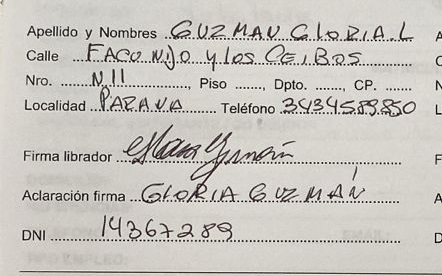 Apellido y Nombres GUZMAN GLORIA L
Calle FACUNDO y LOS CEIBOS
Nro. N11, Piso ......., Dpto. ......, CP. ......
Localidad PARANA Teléfono 3434589850
Firma librador
Aclaración firma GLORIA GUZMÁN
DNI 14367289